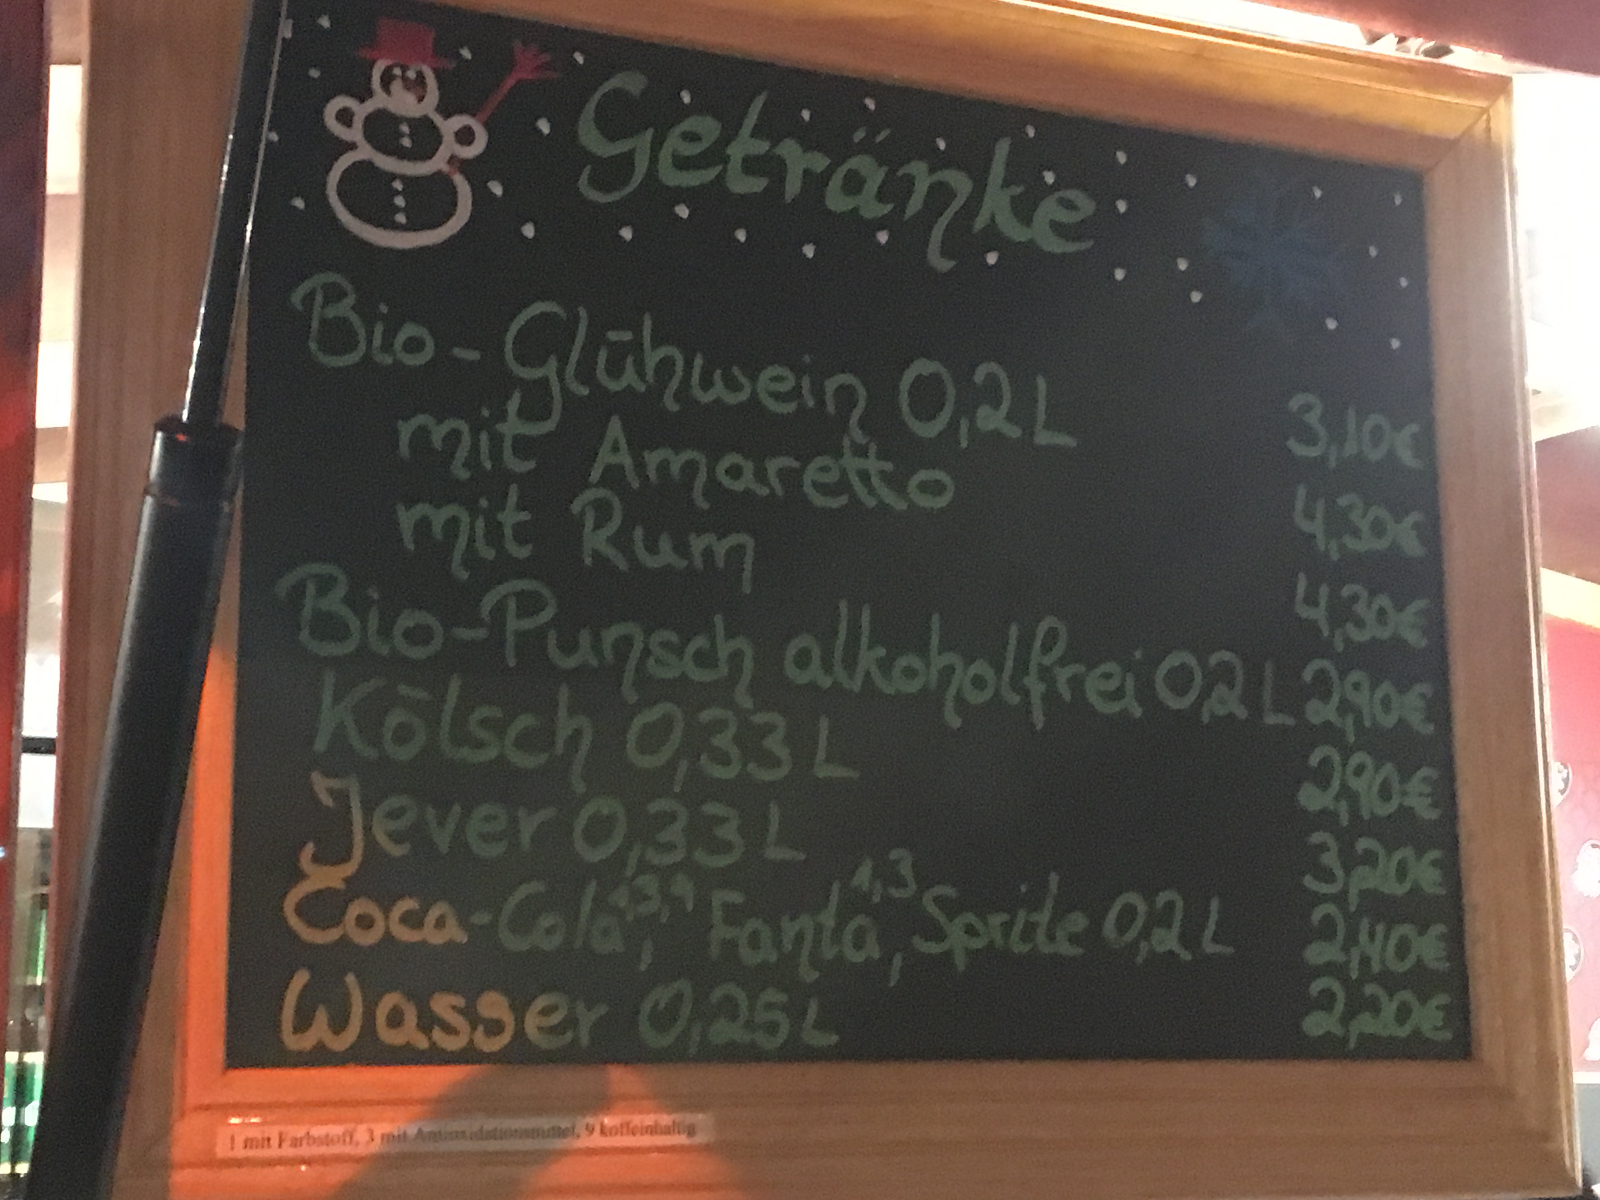 Getränke
Bio-Glühwein 0,2L 3,10€
mit Amaretto 4,30€
mit Rum 4,30€
Bio-Punsch alkoholfrei 0,2L 2,90€
Kölsch 0,33L 2,90€
Jever 0,33L 3,20€
Coca-Cola1,3,9, Fanta1,3, Sprite 0,2L 2,40€
Wasser 0,25L 2,20€
1 mit Farbstoff, 3 mit Antioxidationsmittel, 9 koffeinhaltig